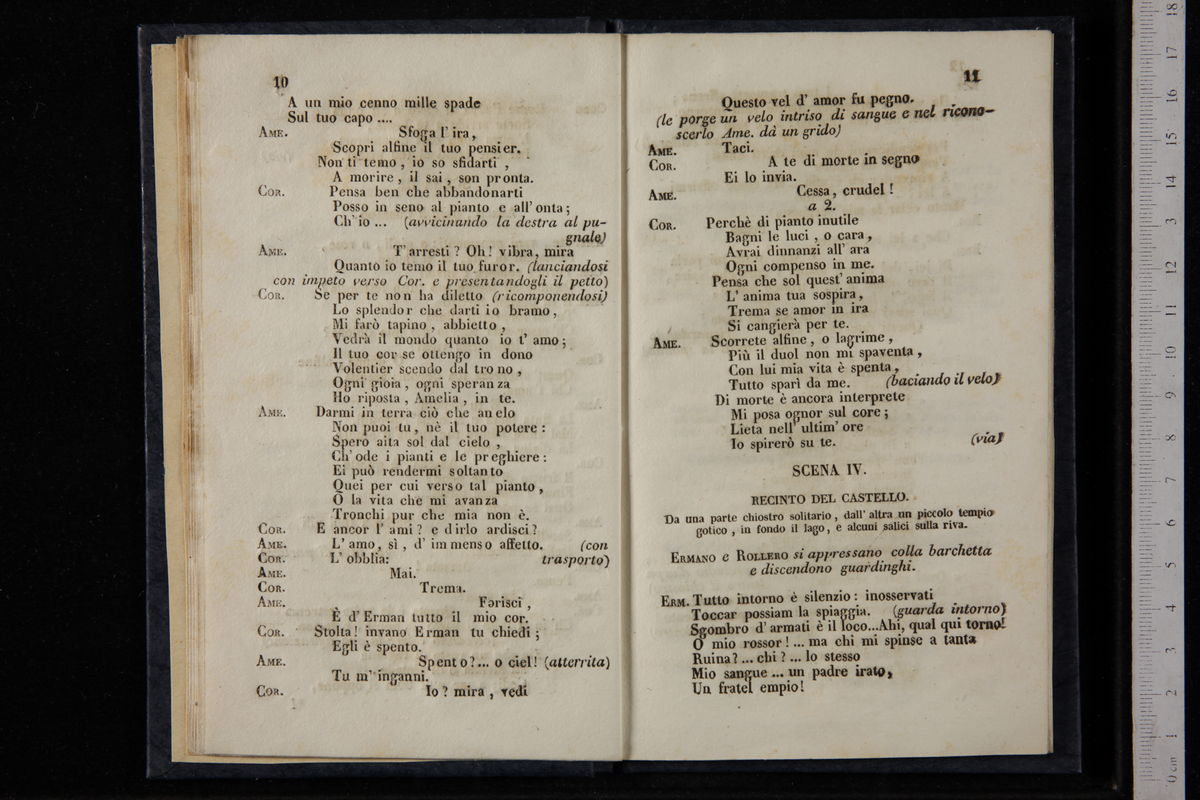 10
A un mio cenno mille spade
Sul tuo capo ....
AME. Sfoga l' ira,
Scopri alfine il tuo pensier.
Non ti temo, io so sfidarti,
A morire, il sai, son pronta.
COR. Pensa ben che abbandonarti
Posso in seno al pianto e all' onta;
Ch' io ... (avvicinando la destra al pu-
gnale)
AME. T' arresti? Oh! vibra, mira
Quanto io temo il tuo furor. (lanciandosi
con impeto verso Cor. e presentandogli il petto)
COR. Se per te non ha diletto (ricomponendosi)
Lo splendor che darti io bramo,
Mi farò tapino, abbietto,
Vedrà il mondo quanto io t' amo;
Il tuo cor se ottengo in dono
Volentier scendo dal trono,
Ogni gioia, ogni speranza
Ho riposta, Amelia, in te.
AME. Darmi in terra ciò che anelo
Non puoi tu, nè il tuo potere:
Spero aita sol dal cielo,
Ch' ode i pianti e le preghiere:
Ei può rendermi soltanto
Quei per cui verso tal pianto,
O la vita che mi avanza
Tronchi pur che mia non è.
COR. E ancor l' ami? e dirlo ardisci?
AME. L' amo, sì, d' immenso affetto. (con
COR. L' obblia: trasporto)
AME. Mai.
COR. Trema.
AME. Farisci,
È d' Erman tutto il mio cor.
COR. Stolta! invano Erman tu chiedi;
Egli è spento.
AME. Spento?... o ciel! (atterrita)
Tu m' inganni.
COR. Io? mira, vedi
11
Questo vel d' amor fu pegno.
(le porge un velo intriso di sangue e nel ricono-
scerlo Ame. dà un grido)
AME. Taci.
COR. A te di morte in segno
Ei lo invia.
AME. Cessa, crudel!
a 2.
COR. Perchè di pianto inutile
Bagni le luci, o cara,
Avrai dinnanzi all' ara
Ogni compenso in me.
Pensa che sol quest' anima
L' anima tua sospira,
Trema se amor in ira
Si cangierà per te.
AME. Scorrete alfine, o lagrime,
Più il duol non mi spaventa,
Con lui mia vita è spenta,
Tutto sparì da me. (baciando il velo)
Di morte è ancora interprete
Mi posa ognor sul core;
Lieta nell' ultim' ore
Io spirerò su te. (via)
SCENA IV.
RECINTO DEL CASTELLO.
Da una parte chiostro solitario, dall' altra un piccolo tempio
gotico, in fondo il lago, e alcuni salici sulla riva.
ERMANO e ROLLERO si appressano colla barchetta
e discendono guardinghi.
ERM. Tutto intorno è silenzio: inosservati
Toccar possiam la spiaggia. (guarda intorno)
Sgombro d' armati è il loco...Ahi, qual qui torno!
O mio rossor!... ma chi mi spinse a tanta
Ruina?... chi?... lo stesso
Mio sangue ... un padre irato,
Un fratel empio!
0 cm 1 2 3 4 5 6 7 8 9 10 11 12 13 14 15 16 17 18